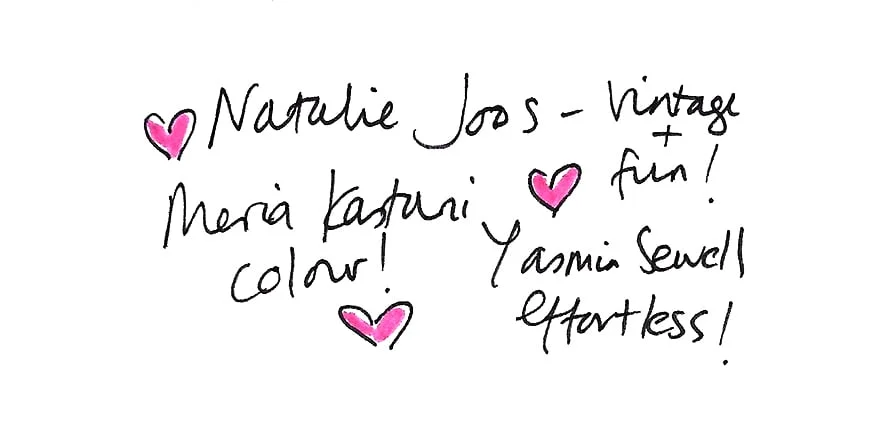 Natalie Joos - Vintage
+
fun!
Meria Kastuni
colour!
Yasmin Sewell
effortless!